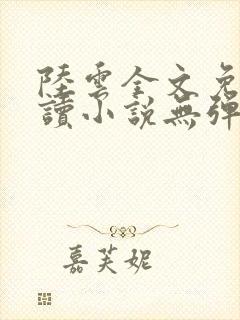 陸雲全文免
讀小說無彈
嘉芙妮